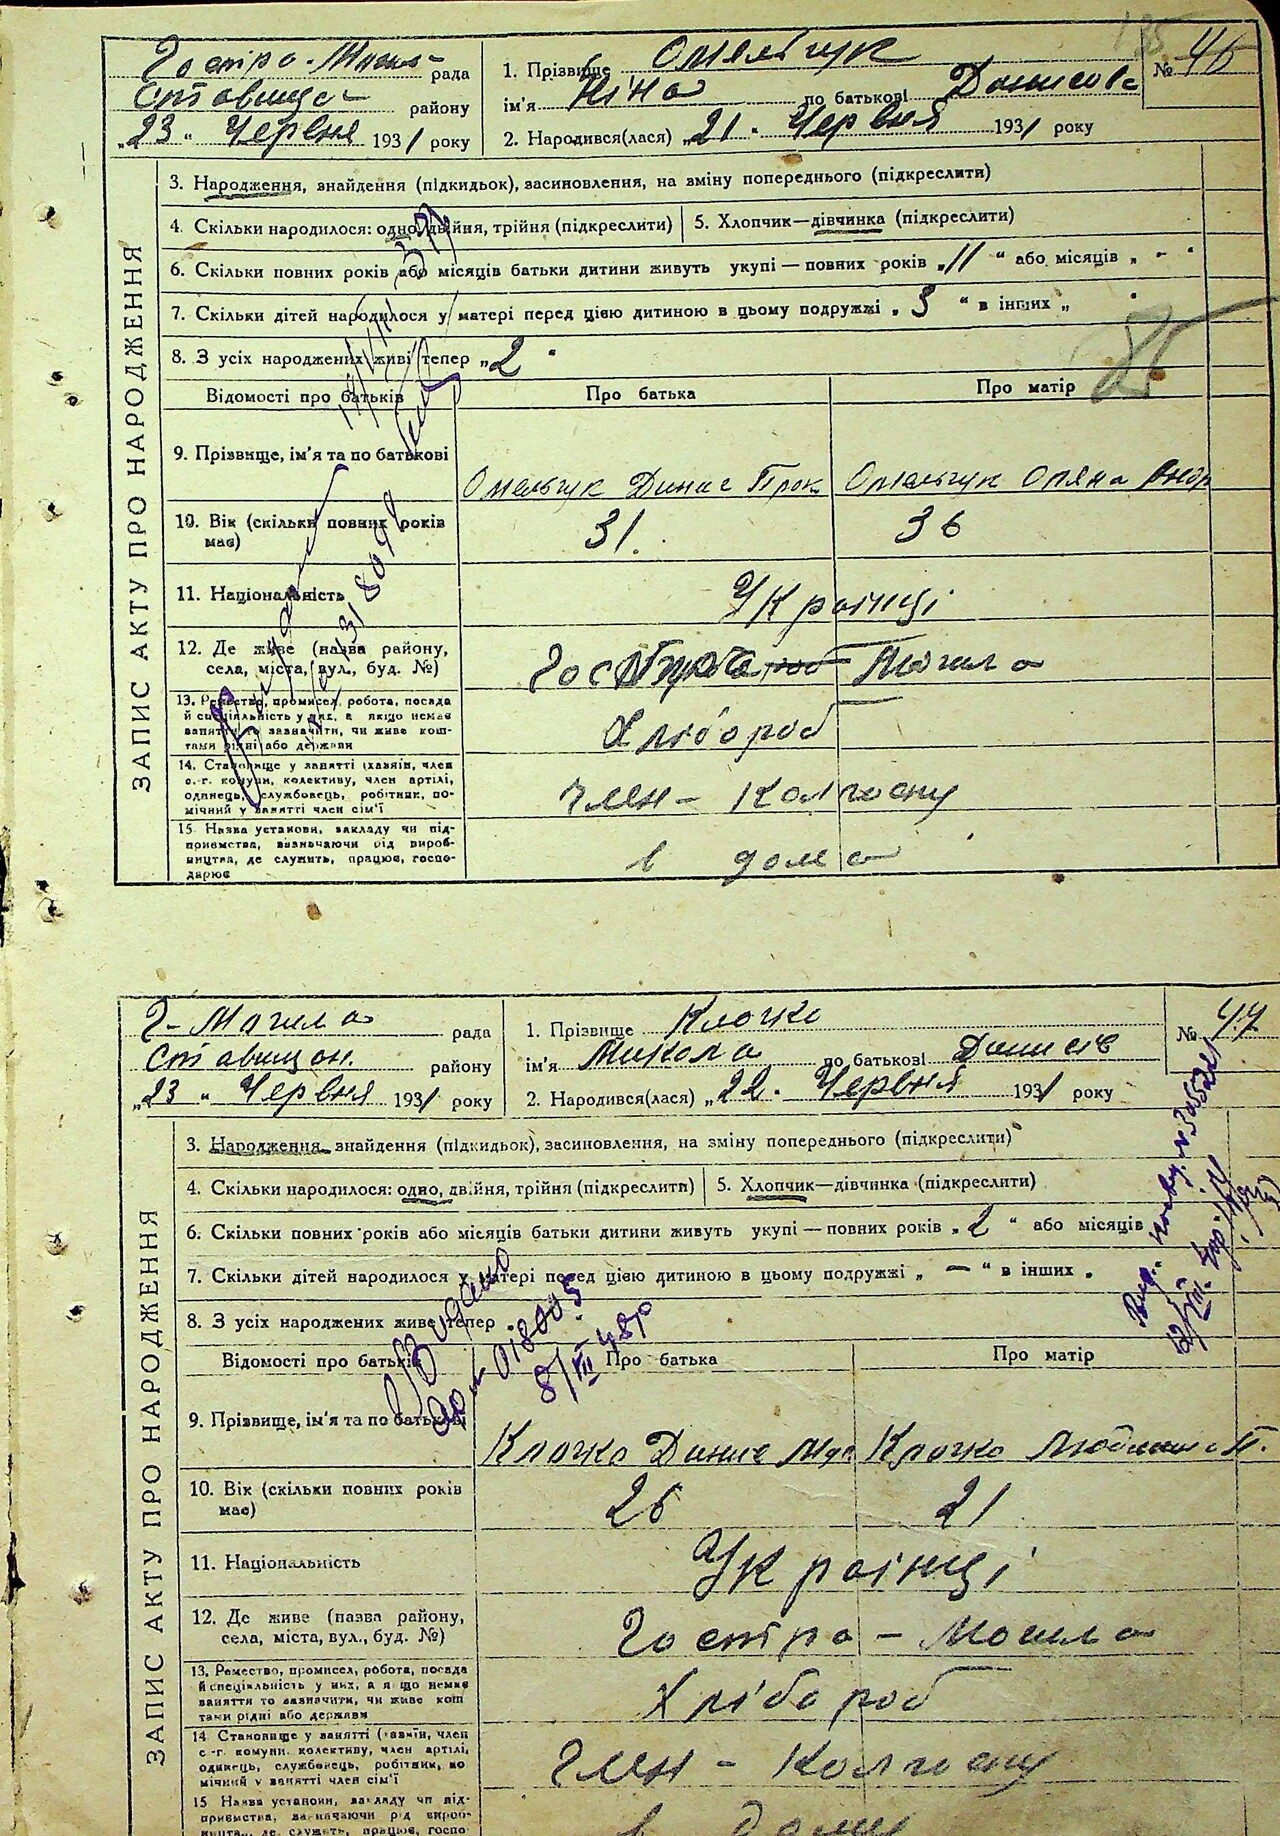 195
Гостро-Могил рада
Ставищан району
„23 „ Червня 1931 року
1. Прізвище Омельчук
ім'я Ніна по батькові Данисова
№ 46
2. Народився(лася) „21. Червня 1931 року
ЗАПИС АКТУ ПРО НАРОДЖЕННЯ
3. Народження, знайдення (підкидьок), засиновлення, на зміну попереднього (підкреслити)
4. Скільки народилося: одно, двійня, трійня (підкреслити) 5. Хлопчик—дівчинка (підкреслити)
6. Скільки повних років або місяців батьки дитини живуть укупі — повних років „11 “ або місяців „ - “
7. Скільки дітей народилося у матері перед цією дитиною в цьому подружжі „ 3 “ в інших „
8. З усіх народжених живі тепер „2
85
Відомості про батьків Про батька Про матір
9. Прізвище, ім'я та по батькові
Омельчук Динис Прок Омельчук Оляна Андр
10. Вік (скільки повних років має) 31. 36
11. Національність Українці
12. Де живе (назва району, села, міста, вул., буд. №) Могила
13. Ремество, промисел, робота, посада
й спеціальність у них, а якщо немає
заняття то зазначити, чи живе кош-
тами рідні або держави
Хлібороб
14. Становище у занятті (хазяїн, член
с.-г. комуни, колективу, член артілі,
одинець, службовець, робітник, по-
мічний у занятті член сім'ї
Член - Колгоспу
15 Назва установи, закладу чи під-
приємства, визначаючи рід вироб-
ництва, де служить, працює, госпо-
дарює
в дома
Г-Могила рада
Ставищан. району
„23 „ Червня 1931 року
1. Прізвище Клочко
ім'я Микола по батькові Данисів
№ 47
2. Народився(лася) „22. Червня 1931 року
ЗАПИС АКТУ ПРО НАРОДЖЕННЯ
3. Народження, знайдення (підкидьок), засиновлення, на зміну попереднього (підкреслити)
4. Скільки народилося: одно, двійня, трійня (підкреслити) 5. Хлопчик—дівчинка (підкреслити)
6. Скільки повних років або місяців батьки дитини живуть укупі — повних років „ 2 “ або місяців
7. Скільки дітей народилося у матері перед цією дитиною в цьому подружжі „ — “ в інших „
8. З усіх народжених живе тепер
Видано
018005
8/VII 48р
Відомості про батьків Про батька Про матір
9. Прізвище, ім'я та по батькові
Клочко Динис Клочко П.
10. Вік (скільки повних років має) 26 21
11. Національність Українці
12. Де живе (назва району, села, міста, вул., буд. №) Гостра - Могила
13. Ремество, промисел, робота, посада
й спеціальність у них, а якщо немає
заняття то зазначити, чи живе кош
тами рідні або держави
Хлібороб
14 Становище у занятті (хазяїн, член
с-г. комуни, колективу, член артілі,
одинець, службовець, робітник, по
мічний у занятті член сім'ї
Член - Колгоспу
15 Назва установи, закладу чи під-
приємства, зазначаючи рід вироб-
ництва, де служить, працює, госпо-
в дома